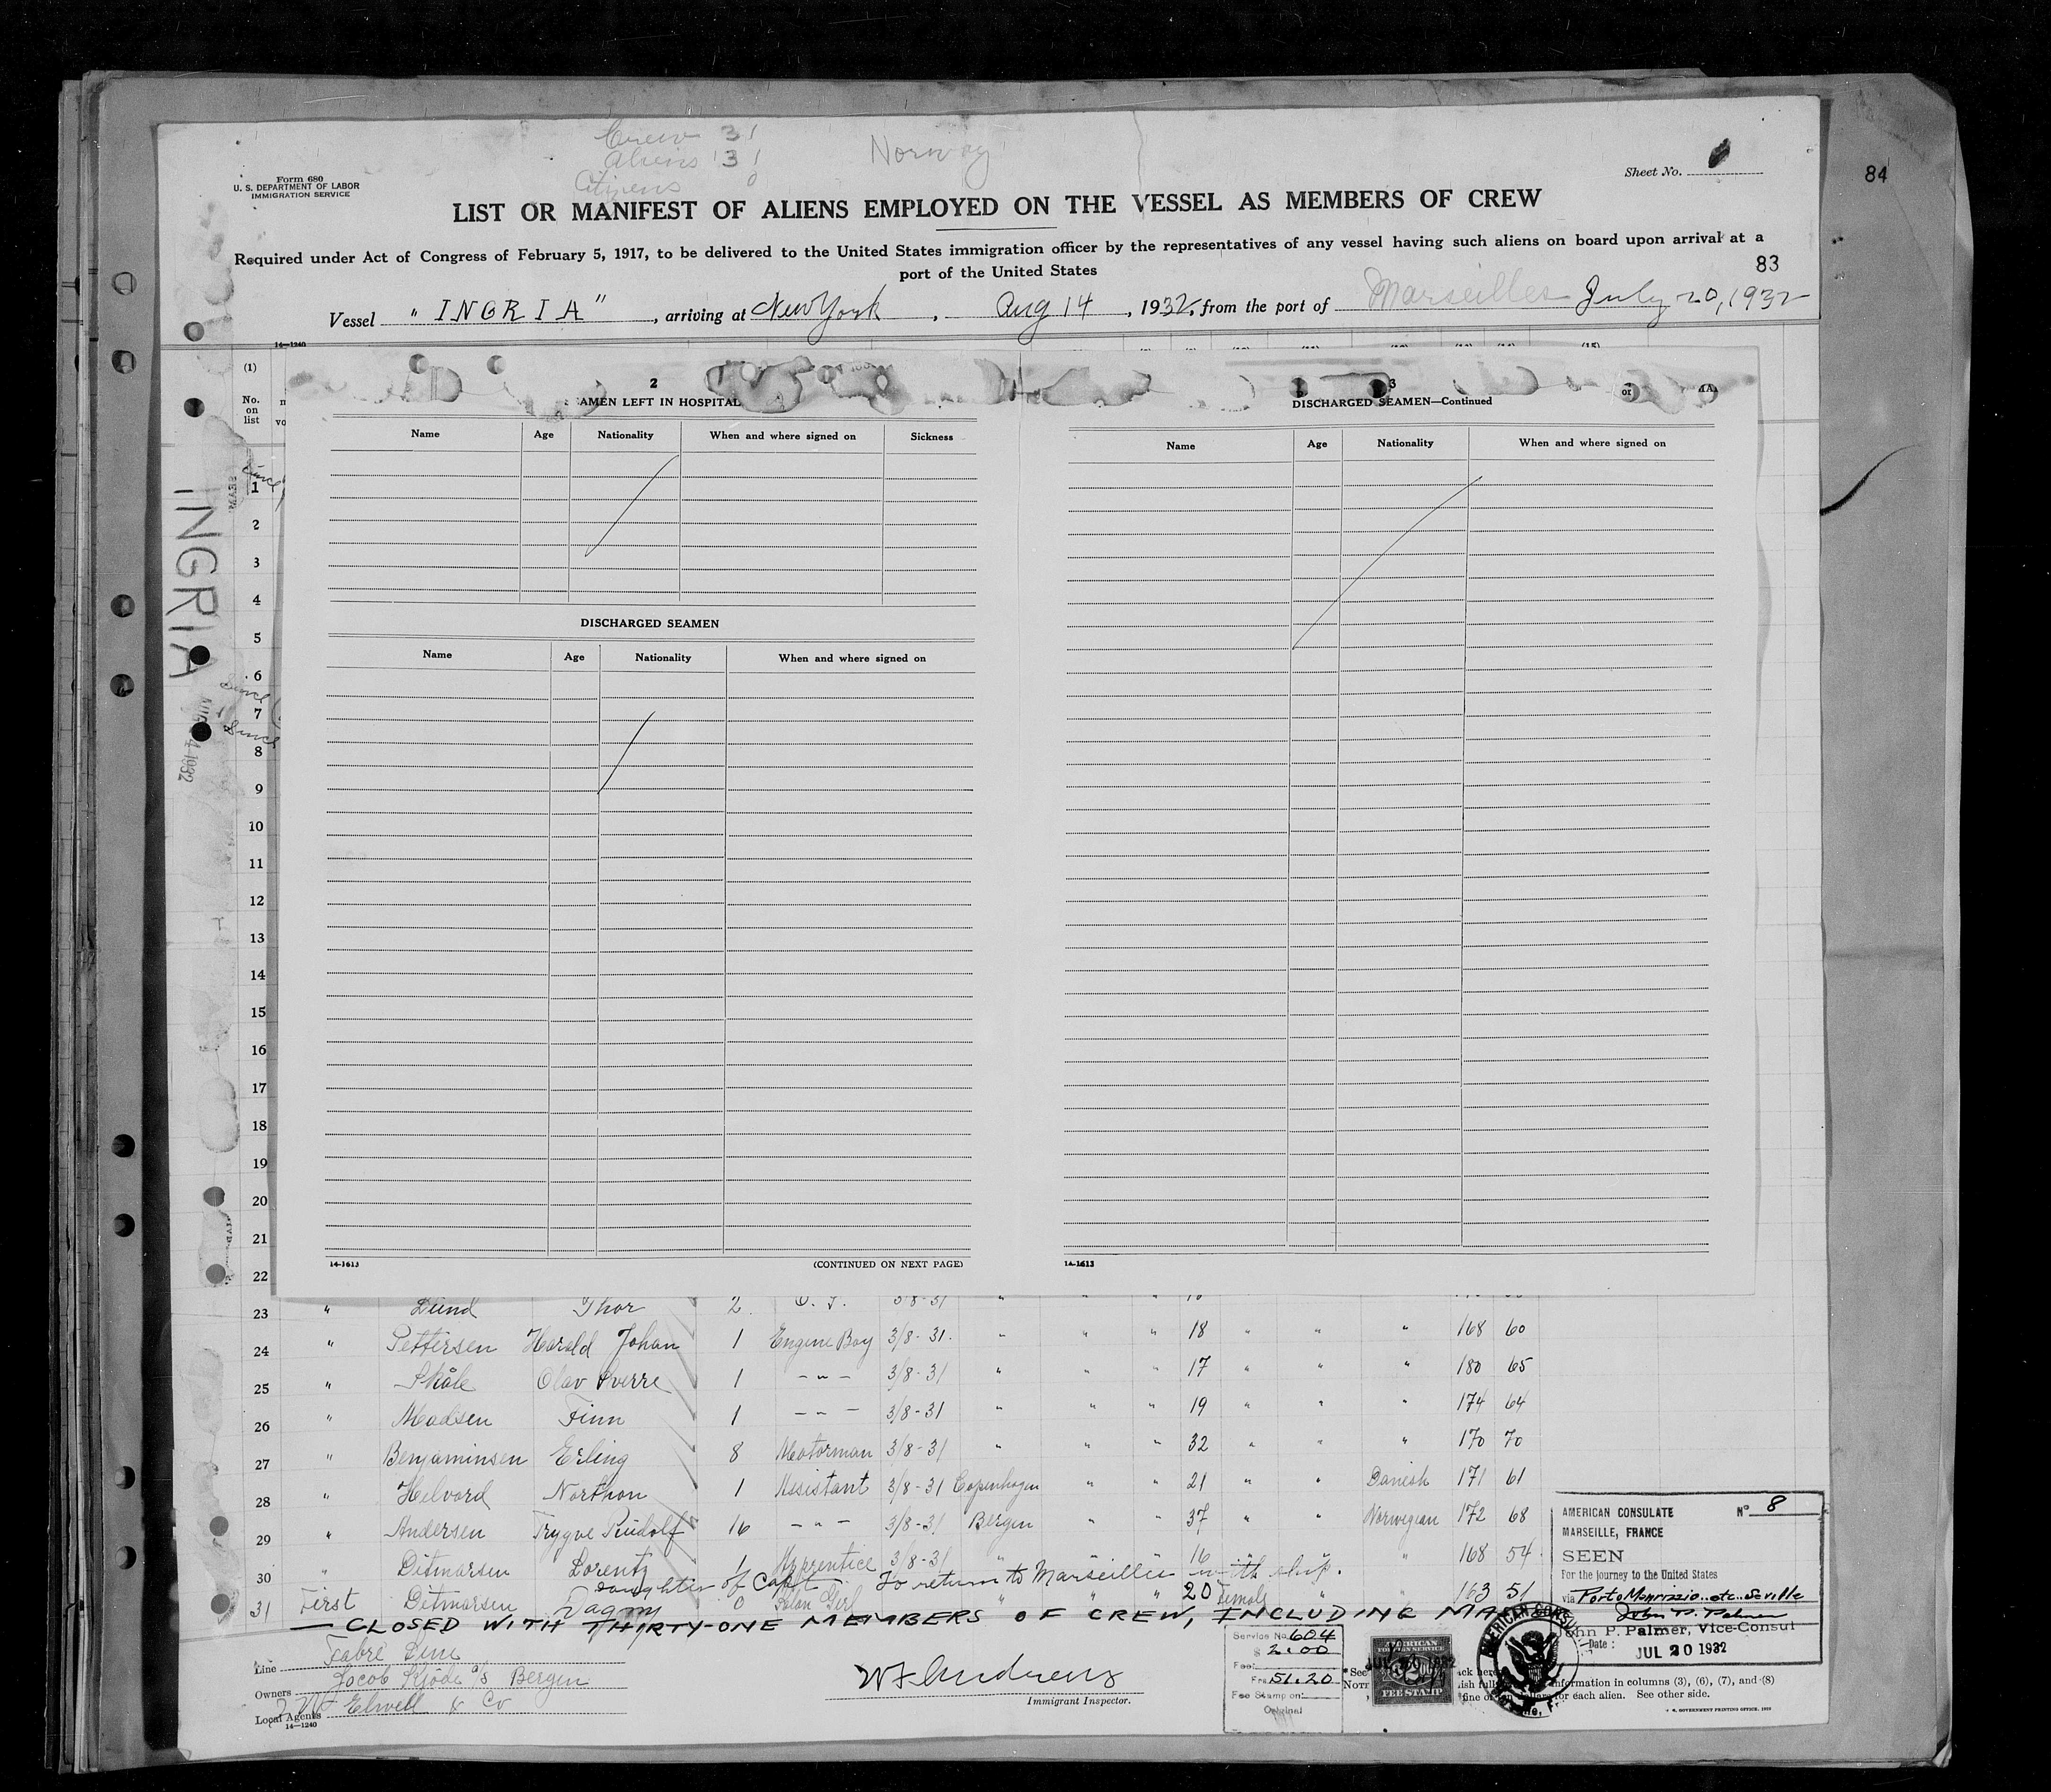 Crew 31
Aliens 31
Citizens 0
Norway
Form 680
U. S. DEPARTMENT OF LABOR
IMMIGRATION SERVICE
Sheet No.
84
LIST OR MANIFEST OF ALIENS EMPLOYED ON THE VESSEL AS MEMBERS OF CREW
Required under Act of Congress of February 5, 1917, to be delivered to the United States immigration officer by the representatives of any vessel having such aliens on board upon arrival at a
port of the United States
83
Vessel "INGRIA", arriving at New York, Aug 14, 1932, from the port of Marseilles July 20, 1932
14-1240
(1)
No.
on
list
INGRIA
2
SEAMEN LEFT IN HOSPITAL
Name Age Nationality When and where signed on Sickness
DISCHARGED SEAMEN
Name Age Nationality When and where signed on
14-1613
(CONTINUED ON NEXT PAGE)
3
DISCHARGED SEAMEN—Continued
Name Age Nationality When and where signed on
14-1613
1
2
3
4
5
6
7
8
9
10
11
12
13
14
15
16
17
18
19
20
21
22
23 " Lund Thor 2 O. S. 3/8-31
24 " Pettersen Harald Johan 1 Engine Boy 3/8-31 " " " 18 " " " 168 60
25 " Skåle Olav Sverre 1 — " — 3/8-31 " " 17 " " " 180 65
26 " Madsen Finn 1 — " — 3/8-31 " " " 19 " " " 174 64
27 " Benjaminsen Erling 8 Motorman 3/8-31 " " " 32 " " " 170 70
28 " Helvard Northon 1 Assistant 3/8-31 Copenhagen " " 21 " " Danish 171 61
29 " Andersen Trygve Rudolf 16 — " — 3/8-31 Bergen " " 37 " " Norwegian 172 68
30 " Ditmarsen Lorentz 1 Apprentice 3/8-31 " " " 16 " " " 168 54
daughter of Capt. To return to Marseilles with ship.
31 First Ditmarsen Dagny 0 Salon Girl " " " 20 Female " " 163 51
— CLOSED WITH THIRTY-ONE MEMBERS OF CREW, INCLUDING
Line Fabre Line
Owners Jacob Kjöde a/s Bergen
Local Agents Elwell & Co
14—1240
W F Andrews
Immigrant Inspector.
Service No. 604
$ 2.00
Fee:
Frs. 51.20
Fee Stamp on:
Original
AMERICAN
FOREIGN SERVICE
JUL 20 1932
FEE STAMP
AMERICAN CONSULATE
MARSEILLE, FRANCE
No 8
SEEN
For the journey to the United States
via Porto Maurizio etc. Seville
John P. Palmer
John P. Palmer, Vice-Consul
Date: JUL 20 1932
information in columns (3), (6), (7), and (8)
for each alien. See other side.
U. S. GOVERNMENT PRINTING OFFICE